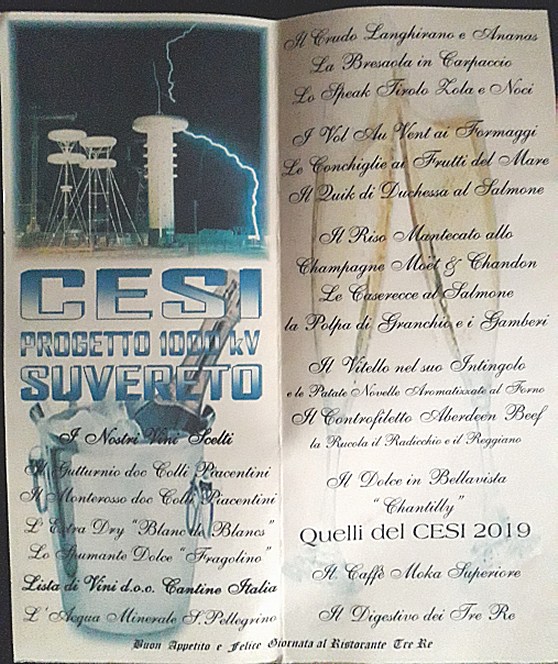 CESI
PROGETTO 1000 kV
SUVERETO
I Nostri Vini Scelti
Il Gutturnio doc Colli Piacentini
Il Monterosso doc Colli Piacentini
L'Extra Dry "Blanc de Blancs"
Lo Spumante Dolce "Fragolino"
Lista di Vini d.o.c. Cantine Italia
L'Acqua Minerale S.Pellegrino
Il Crudo Langhirano e Ananas
La Bresaola in Carpaccio
Lo Speak Tirolo Zola e Noci
I Vol Au Vent ai Formaggi
Le Conchiglie ai Frutti del Mare
Il Quik di Duchessa al Salmone
Il Riso Mantecato allo
Champagne Moët & Chandon
Le Caserecce al Salmone
la Polpa di Granchio e i Gamberi
Il Vitello nel suo Intingolo
e le Patate Novelle Aromatizzate al Forno
Il Controfiletto Aberdeen Beef
la Rucola il Radicchio e il Reggiano
Il Dolce in Bellavista
"Chantilly"
Quelli del CESI 2019
Il Caffè Moka Superiore
Il Digestivo dei Tre Re
Buon Appetito e Felice Giornata al Ristorante Tre Re